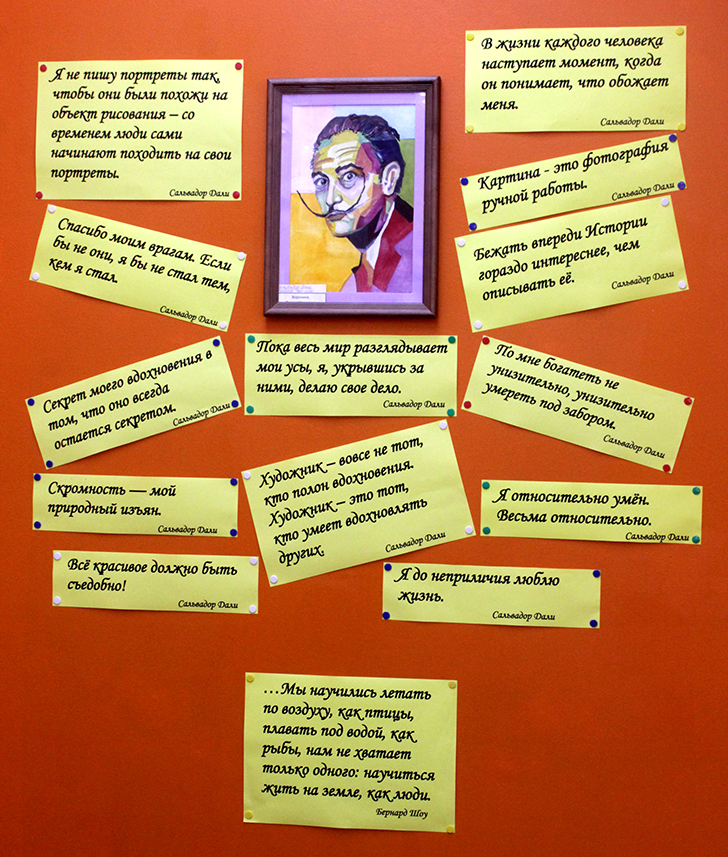 Я не пишу портреты так,
чтобы они были похожи на
объект рисования – со
временем люди сами
начинают походить на свои
портреты.
Сальвадор Дали
В жизни каждого человека
наступает момент, когда
он понимает, что обожает
меня.
Сальвадор Дали
Картина - это фотография
ручной работы.
Сальвадор Дали
Спасибо моим врагам. Если
бы не они, я бы не стал тем,
кем я стал.
Сальвадор Дали
Бежать впереди Истории
гораздо интереснее, чем
описывать её.
Сальвадор Дали
Пока весь мир разглядывает
мои усы, я, укрывшись за
ними, делаю свое дело.
Сальвадор Дали
Секрет моего вдохновения в
том, что оно всегда
остается секретом.
Сальвадор Дали
По мне богатеть не
унизительно, унизительно
умереть под забором.
Сальвадор Дали
Скромность — мой
природный изъян.
Сальвадор Дали
Художник – вовсе не тот,
кто полон вдохновения.
Художник – это тот,
кто умеет вдохновлять
других.
Сальвадор Дали
Я относительно умён.
Весьма относительно.
Сальвадор Дали
Всё красивое должно быть
съедобно!
Сальвадор Дали
Я до неприличия люблю
жизнь.
Сальвадор Дали
...Мы научились летать
по воздуху, как птицы,
плавать под водой, как
рыбы, нам не хватает
только одного: научиться
жить на земле, как люди.
Бернард Шоу